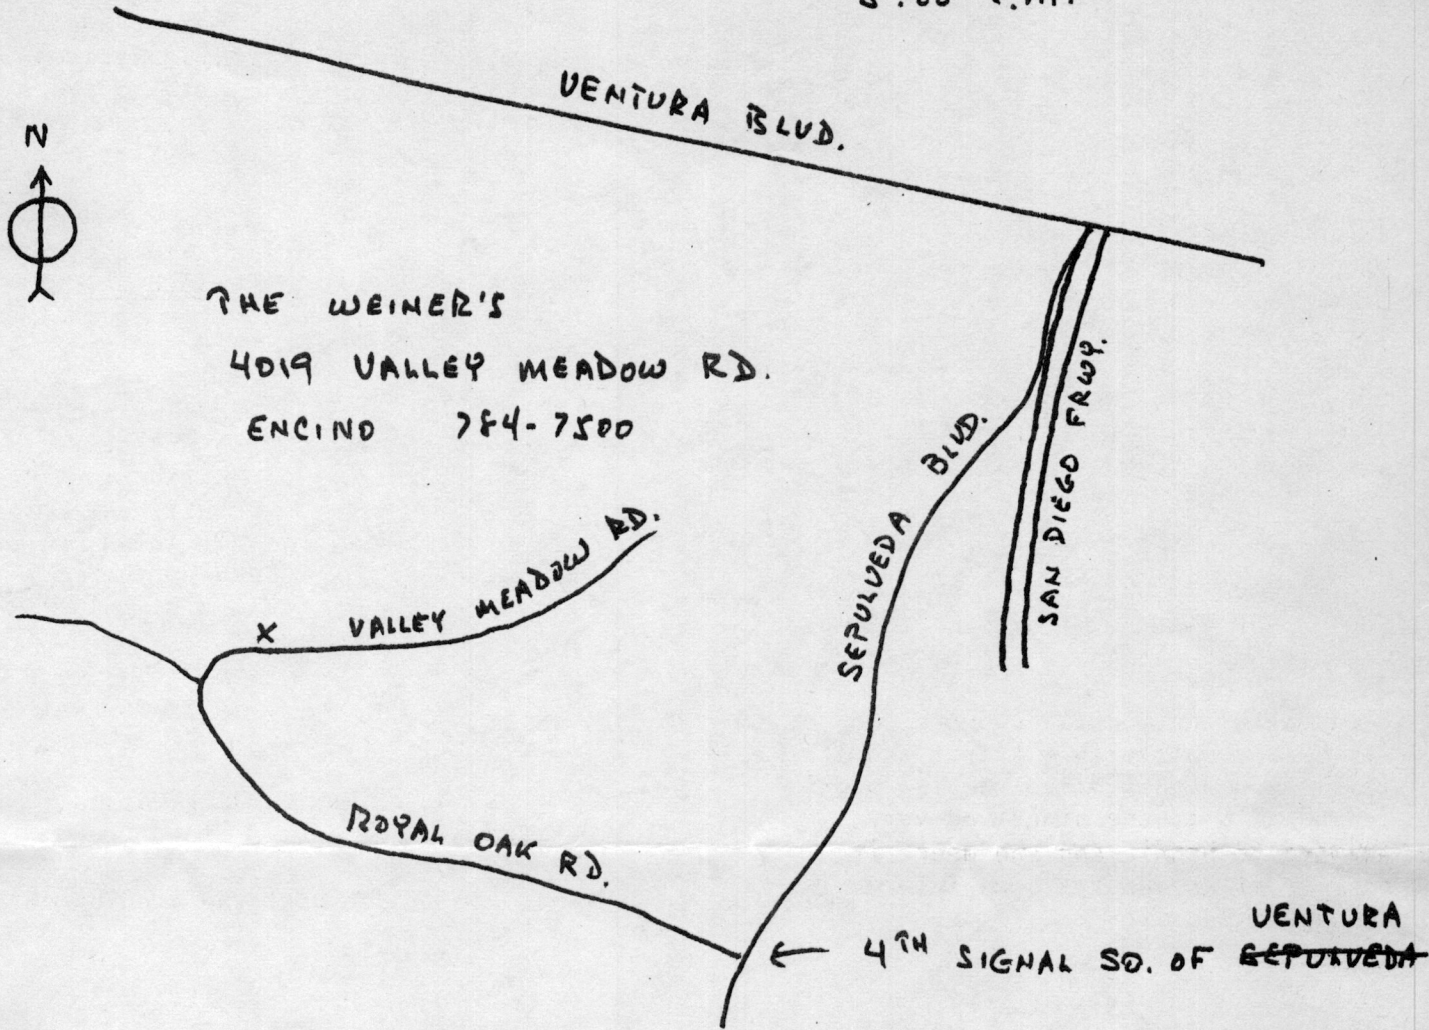 VENTURA BLVD.
N
THE WEINER'S
4019 VALLEY MEADOW RD.
ENCINO 784-7500
SAN DIEGO FRWY.
SEPULVEDA BLVD.
VALLEY MEADOW RD.
X
ROYAL OAK RD.
VENTURA
← 4TH SIGNAL SO. OF SEPULVEDA